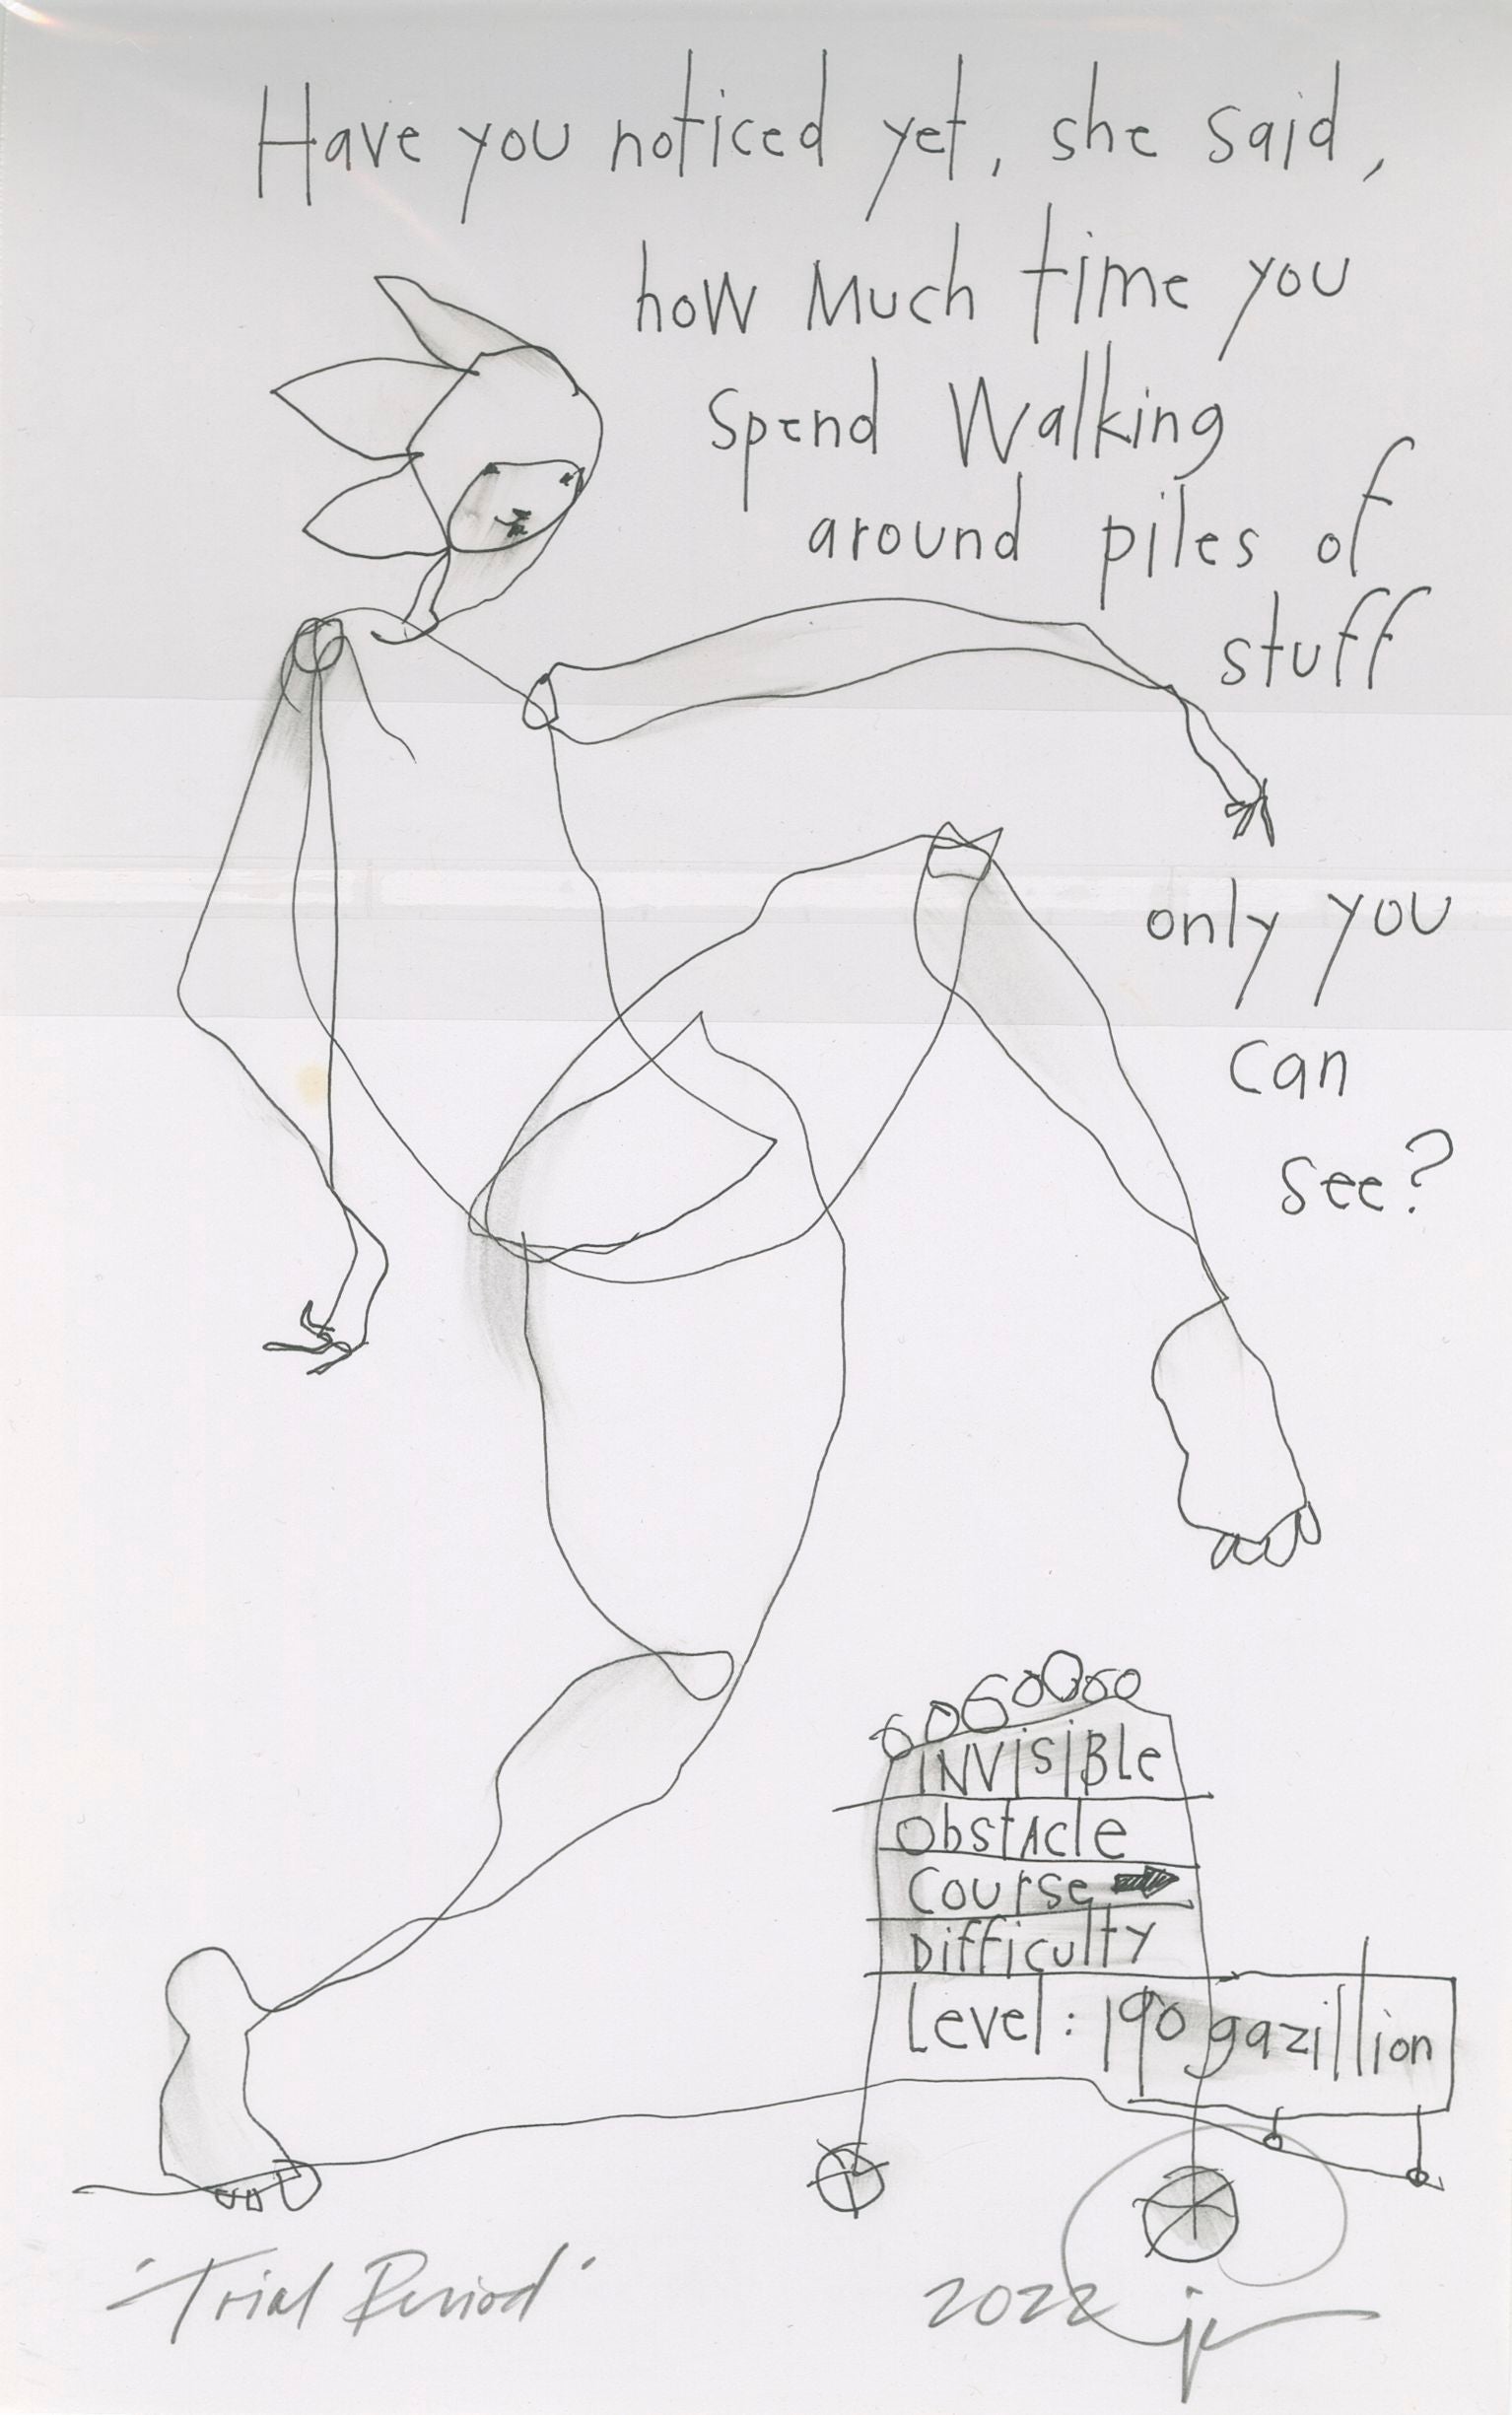 Have you noticed yet, she said,
how Much time you
spend Walking
around piles of
stuff
only you
can
see?
INVisiBLe
ObstAcle
Course
Difficulty
Level: 190 gazillion
'Trial Period'
2022 jv